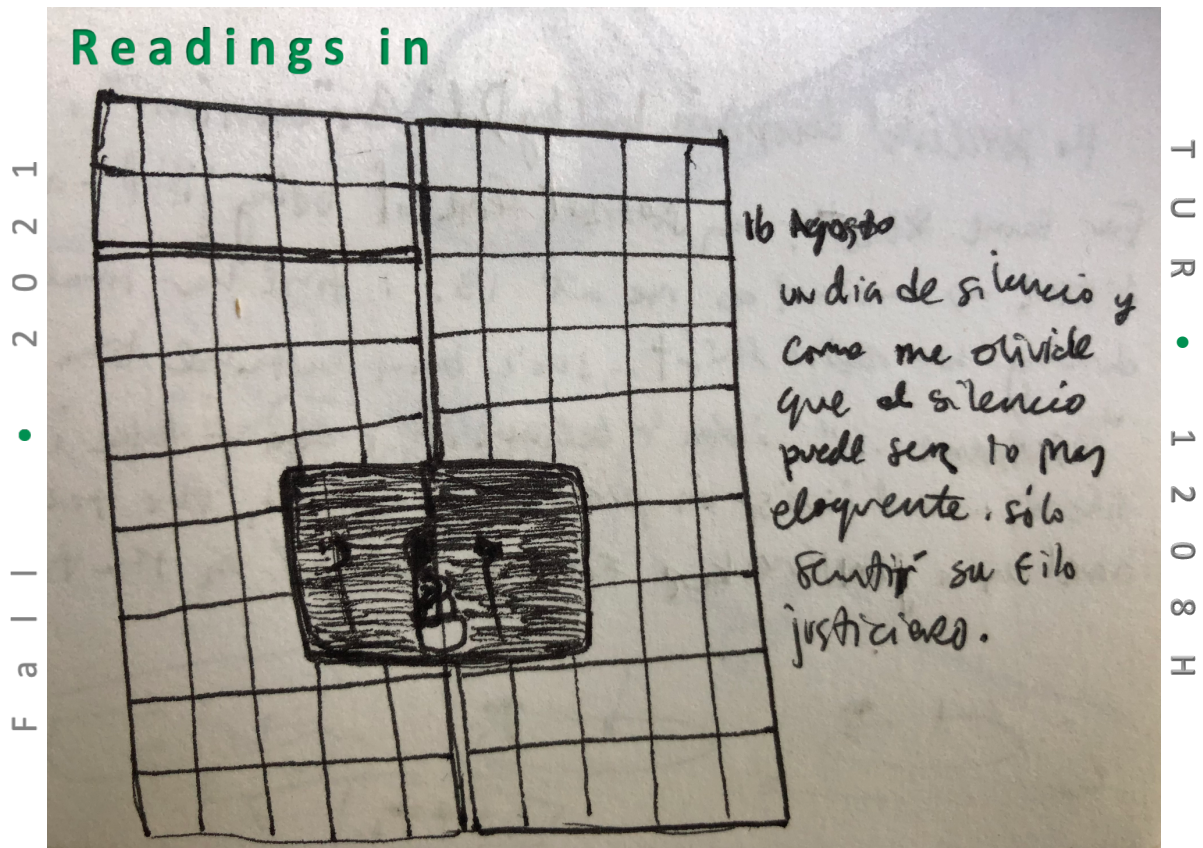 Readings in
Fall • 2021
TUR • 1208H
16 Agosto
un dia de silencio y
como me olvide
que el silencio
puede ser lo mas
eloquente. sólo
sentir su filo
justiciero.